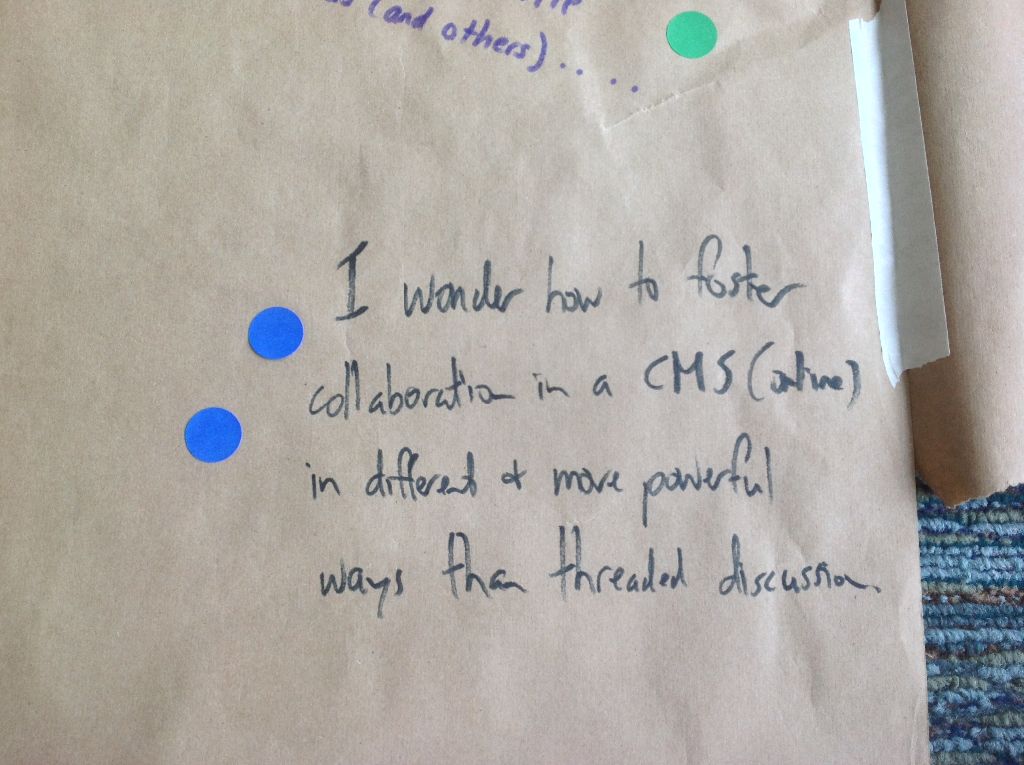 (and others) . . . .
I wonder how to foster
collaboration in a CMS (online)
in different & more powerful
ways than threaded discussion.